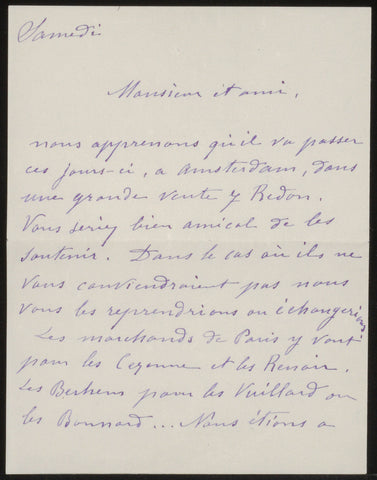 Samedi
Monsieur et ami,
nous apprenons qu'il va passer
ces jours-ci, a Amsterdam, dans
une grande vente 7 Redon.
Vous seriez bien amical de les
soutenir. Dans le cas où ils ne
vous conviendraient pas nous
vous les reprendrions ou échangerions
Les marchands de Paris y vont
pour les Cezanne et les Renoir.
Les Berheim pour les Vuillard ou
les Bonnard... Nous étions a